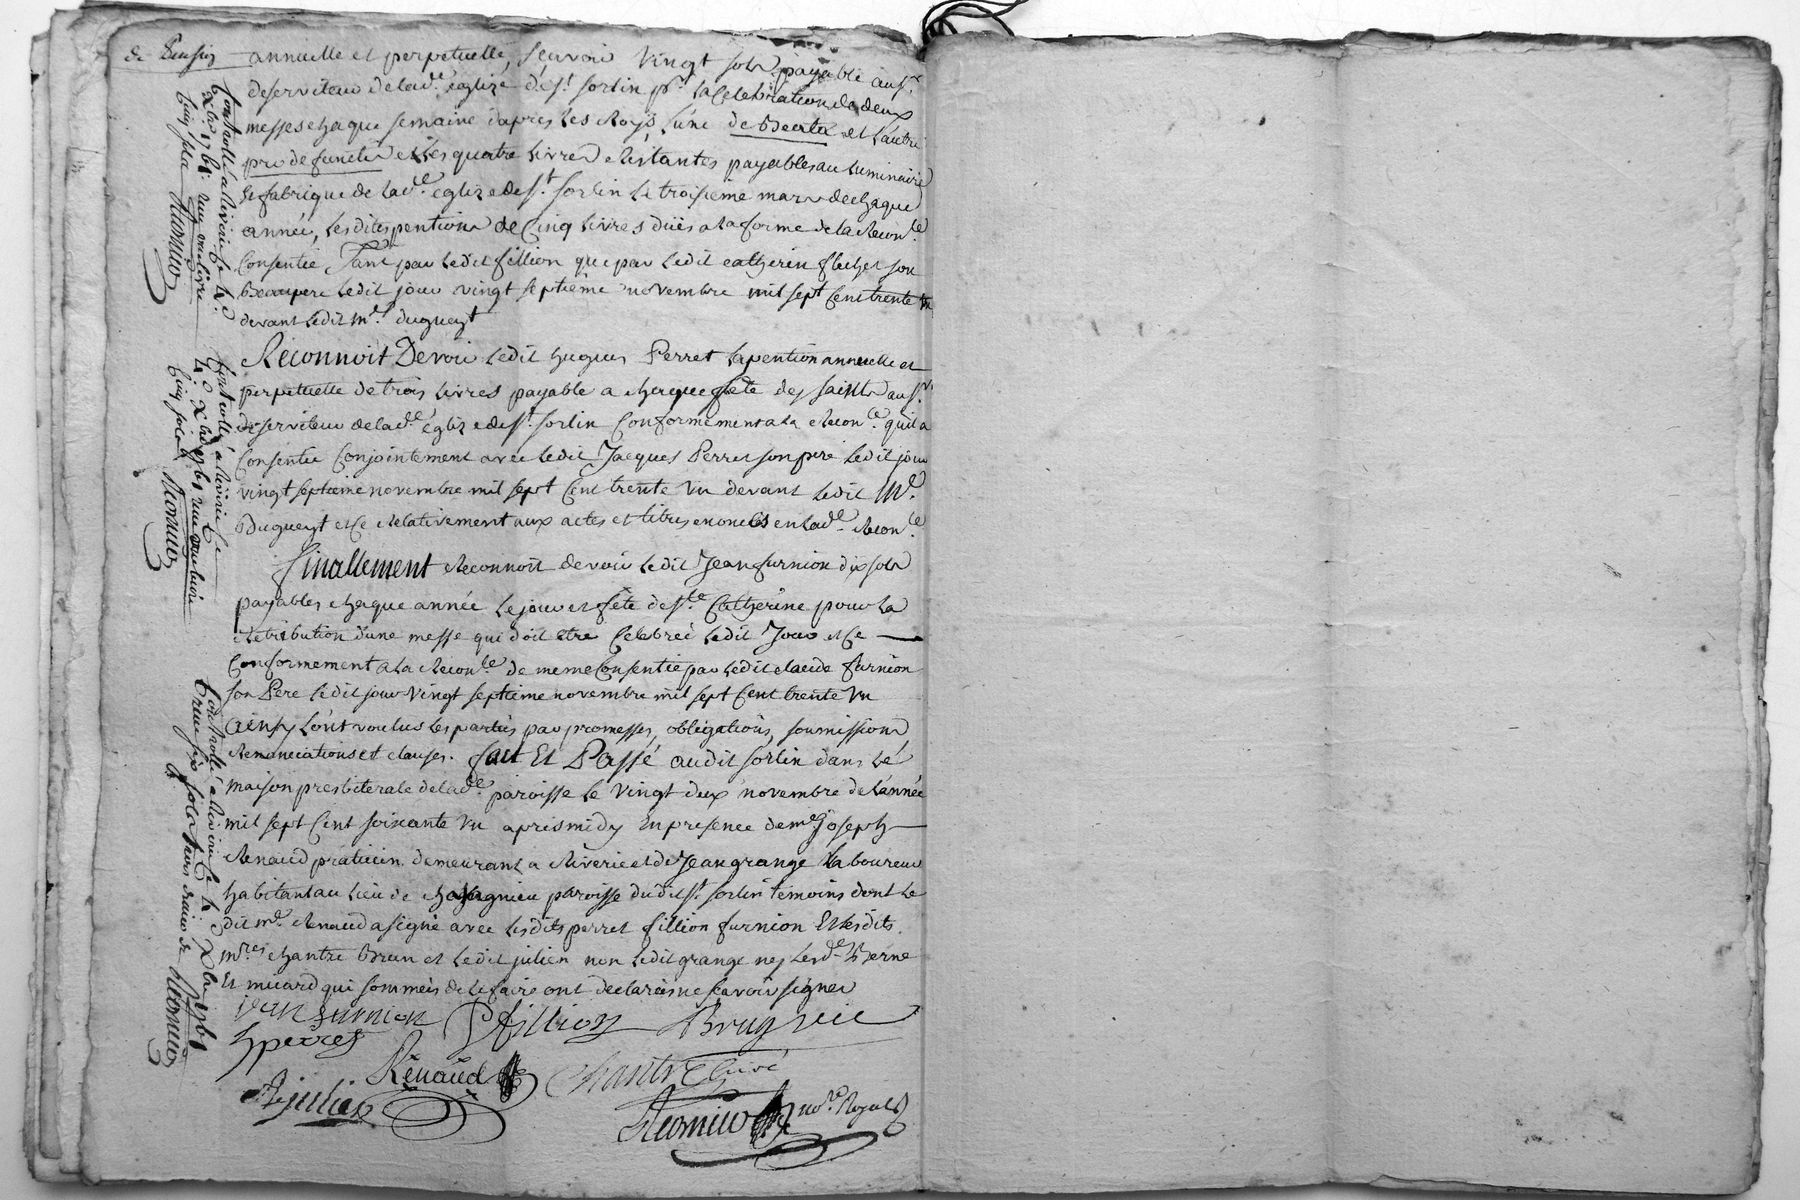 de Pension annuelle et perpetuelle, sçavoir vingt sols payable au sr.
deserviteur de lad.e église de st. sorlin pr. la Celebration de deux
messes chaque semaine d'apres les Roys, l'une de Beata et l'autre
pro defunctis et les quatre livres restantes payables au luminaire
et fabrique de lad.e eglize de st. sorlin le troisieme mars de chaque
année, lesdites pentions de Cinq livres duës a la forme de la recon.ce
Consentie Tant par ledit fillion que par ledit catherin flechet son
Beaupere ledit jour vingt septième novembre mil sept Cent trente un
devant ledit Me. dugueyt
Reconnoit Devoir ledit hugues Perret la pention annuelle et
perpetuelle de trois livres payable a chaque fête des saints au sr.
deserviteur de lad.e église de st. sorlin Conformement a la recon.ce qu'il a
Consentie Conjointement avec ledit Jacques Perret son pere ledit jour
vingt septieme novembre mil sept Cent trente un devant ledit Me.
Dugueyt et Ce relativement aux actes et titres enoncés en lad.e recon.ce
finallement reconnoit devoir ledit Jean furnion dix sols
payables chaque année le jour et fête de ste. Catherine pour la
retribution d'une messe qui doit etre Celebreé ledit Jour et Ce
Conformement a la recon.ce de meme Consentie par ledit claude furnion
son Pere ledit jour vingt septieme novembre mil sept Cent trente un
ainsy l'ont voulus les parties par promesses, obligations, soumissions
renonciations et clauses. fait Et Passé audit sorlin dans la
maison presbiterale de lad.e paroisse le vingt deux novembre de l'année
mil sept Cent soixante un apres midy En presence de me Joseph
Renaud praticien demeurant a Riverie et de Jean grange laboureur
habitant au lieu de paroisse dudit st. sorlin temoins dont le
dit me. Renaud a signé avec lesdits perret fillion furnion Et lesdits
mres chantre Brun et ledit julien non ledit grange ny les d.
Et micard qui sommés de le faire ont declarés ne sçavoir signer
jean furnion P fillion Brun
h perret
Renaud Chantre Curé
julien
nore. Royal
Controllé a Riverie Ce
xbre 1761
Cinq sols
Controllé a Riverie Ce
xbre 1761
Cinq sols
Controllé a Riverie Ce xbre 1761